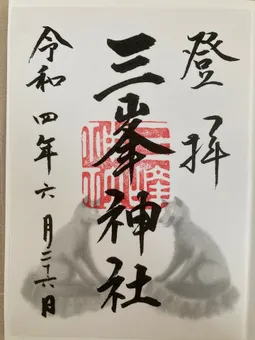 登拝
三峯神社
令和四年六月二十六日